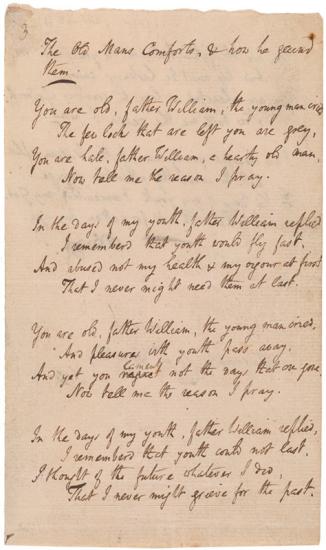 3
The Old Mans Comforts, & how he gained
them
You are old, father William, the young man cried
The few locks that are left you are grey,
You are hale, father William, a hearty old man,
Now tell me the reason I pray.
In the days of my youth, father William replied
I rememberd that youth would fly fast,
And abused not my health & my vigour at first
That I never might need them at last.
You are old, father William, the young man cried,
And pleasures with youth pass away,
lament
And yet you not the days that are gone
Now tell me the reason I pray.
In the days of my youth, father William replied,
I rememberd that youth could not last,
I thought of the future whatever I did,
That I never might grieve for the past.